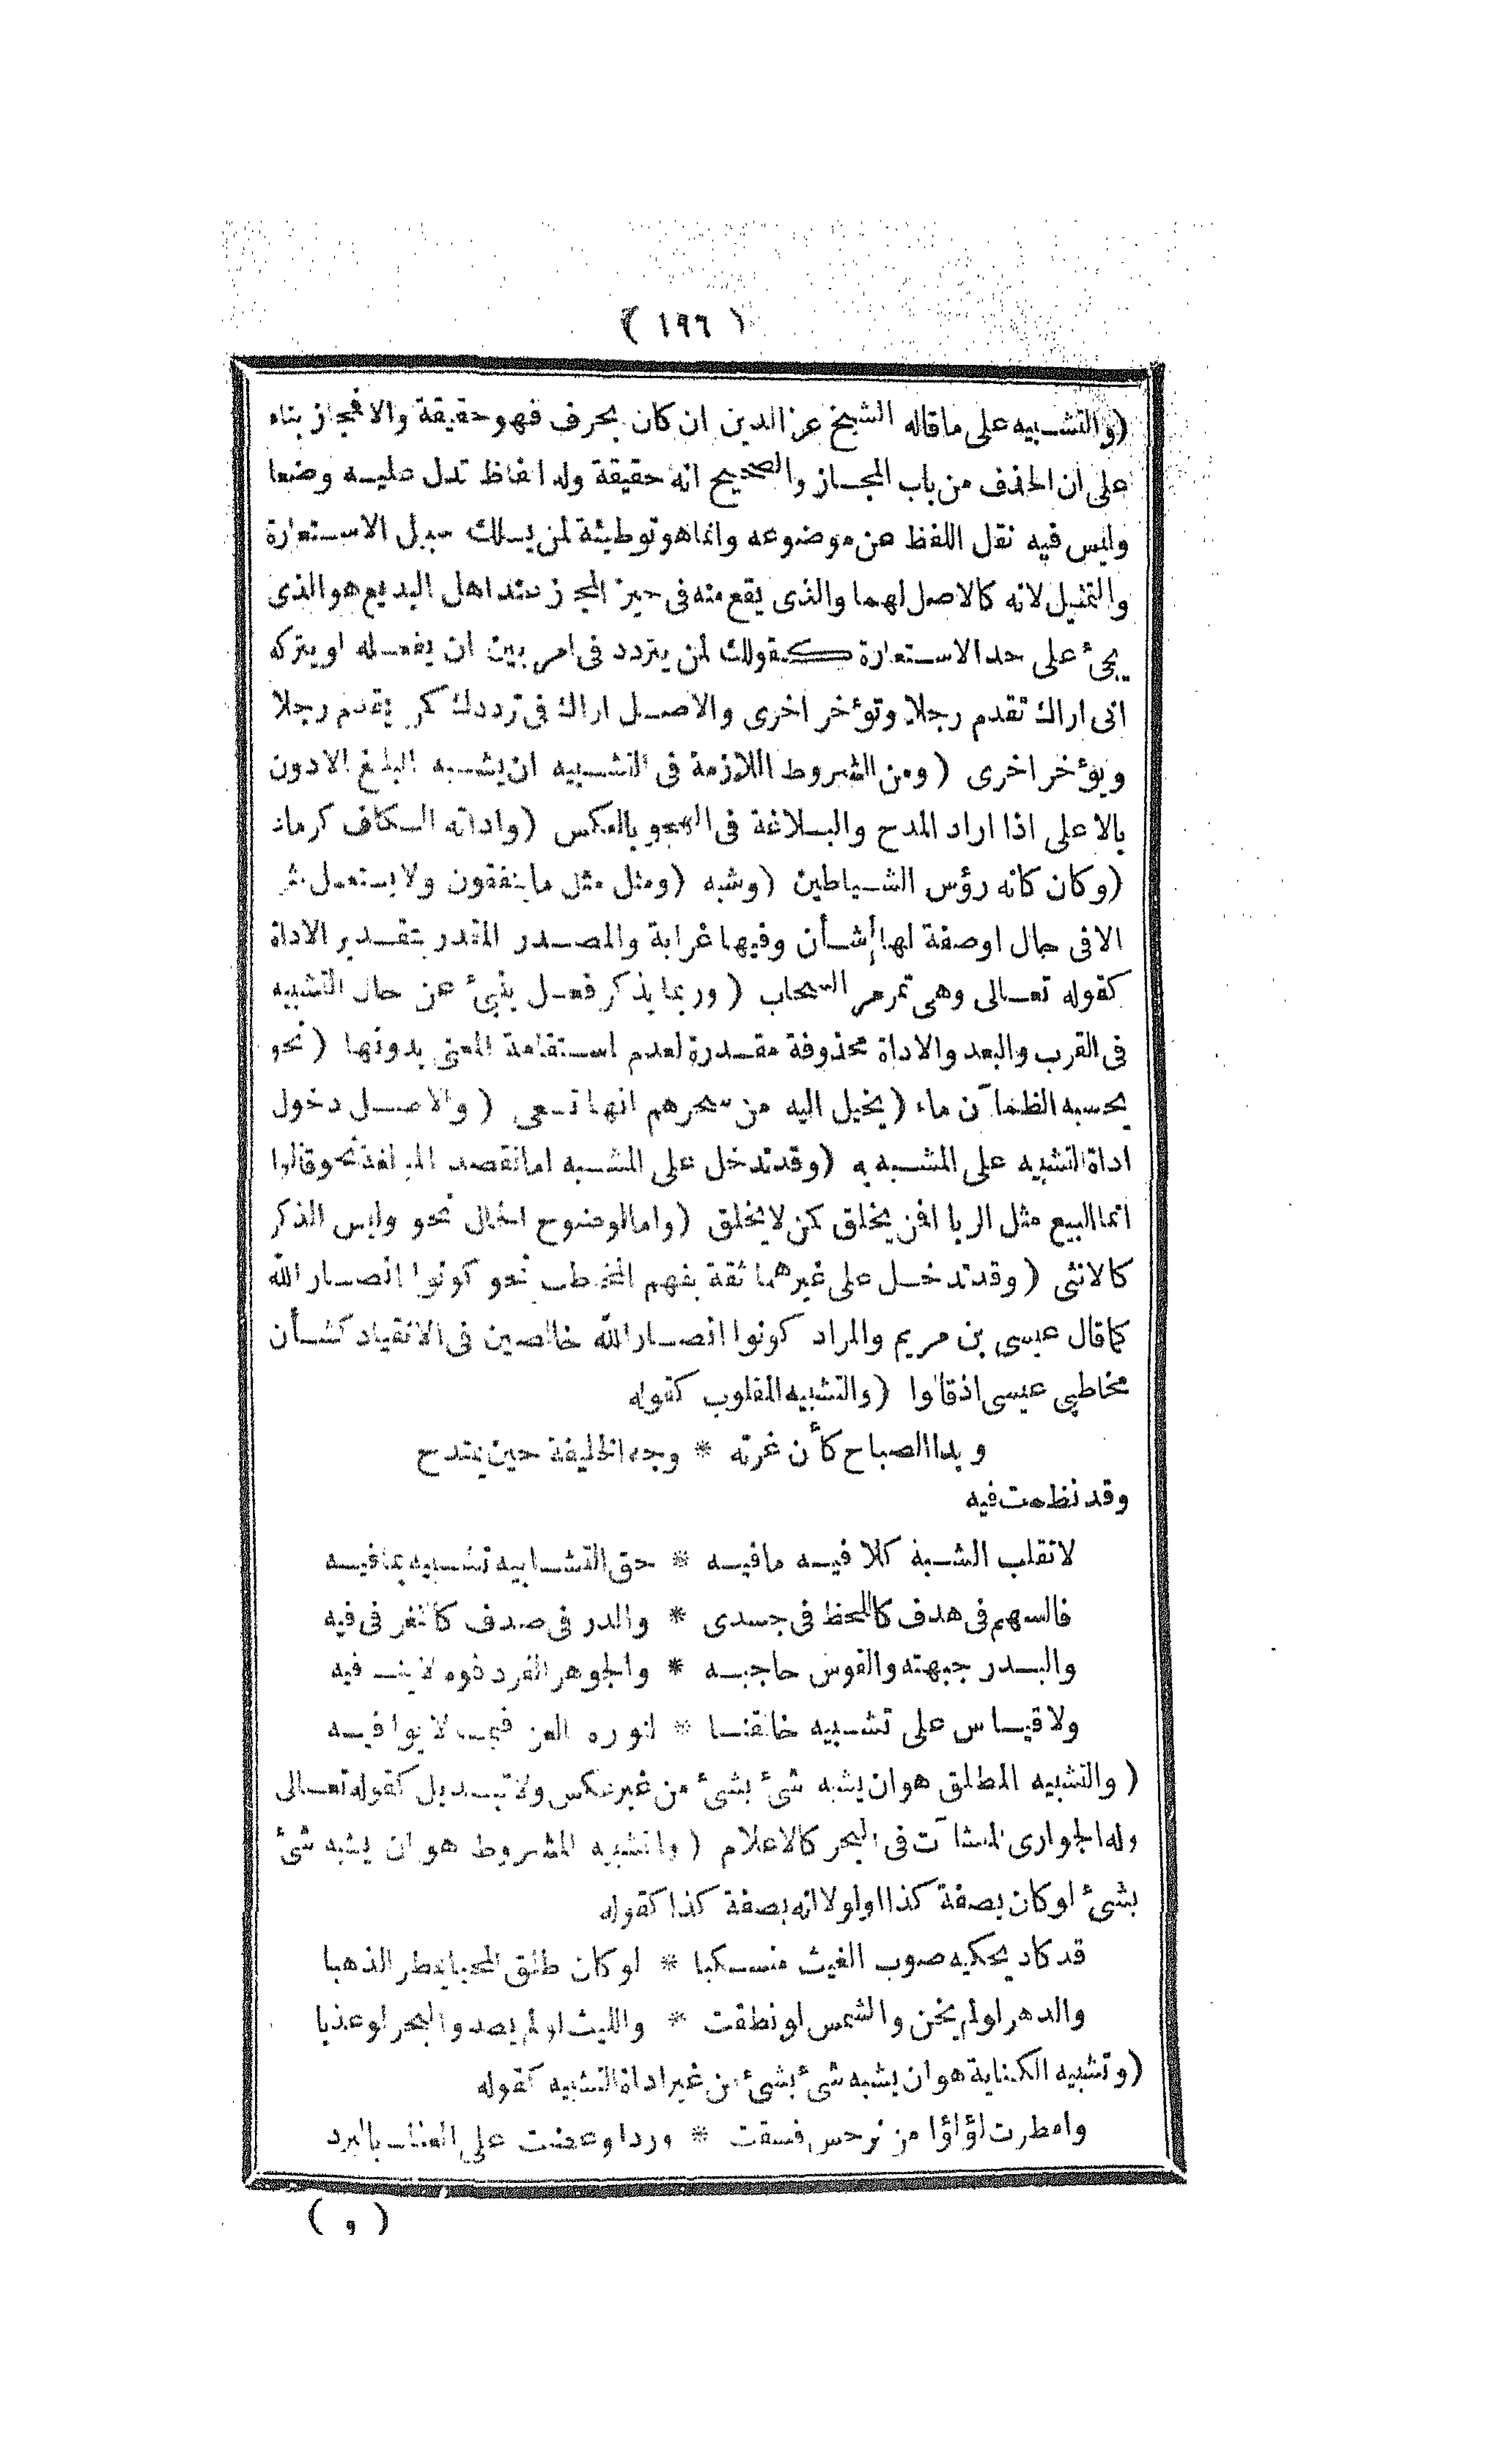 ( ١٩٦ )
(والتشبيه على ما قاله الشيخ عز الدين ان كان بحرف فهو حقيقة والا فمجاز بناء
على ان الحذف من باب المجاز والصحيح انه حقيقة وله الفاظ تدل عليه وضعا
وليس فيه نقل اللفظ عن موضوعه وانما هو توطيئة لمن يسلك سبيل الاستعارة
والتمثيل لانه كالاصل لهما والذى يقع منه فى حيز المجاز عند اهل البديع هو الذى
يجئ على حد الاستعارة كقولك لمن يتردد فى امر بين ان يفعله او يتركه
انى اراك تقدم رجلا وتؤخر اخرى والاصل اراك فى ترددك كمن يقدم رجلا
ويؤخر اخرى (ومن الشروط اللازمة فى التشبيه ان يشبه البليغ الادون
بالاعلى اذا اراد المدح والبلاغة فى الهجو بالعكس (واداته الكاف كرماد
(وكان كانه رؤس الشياطين (وشبه (ومثل مثل ما ينفقون ولا يستعمل مثل
الا فى حال او صفة لها شأن وفيها غرابة والمصدر المقدر بتقدير الاداة
كقوله تعالى وهى تمر مر السحاب (وربما يذكر فعل ينبئ عن حال التشبيه
فى القرب والبعد والاداة محذوفة مقدرة لعدم استقامة المعنى بدونها (نحو
يحسبه الظمآن ماء (يخيل اليه من سحرهم انها تسعى (والاصل دخول
اداة التشبيه على المشبه به (وقد تدخل على المشبه اما لقصد المبالغة نحو قالوا
انما البيع مثل الربا افمن يخلق كمن لا يخلق (واما لوضوح الحال نحو وليس الذكر
كالانثى (وقد تدخل على غيرهما ثقة بفهم المخاطب نحو كونوا انصار الله
كما قال عيسى بن مريم والمراد كونوا انصار الله خالصين فى الانقياد كشأن
مخاطبى عيسى اذ قالوا (والتشبيه المقلوب كقوله
وبدا الصباح كأن غرته * وجه الخليفة حين يمتدح
وقد نظمت فيه
لا تقلب الشبه كلا فيه ما فيه * حق التشابيه تشبيه بما فيه
فالسهم فى هدف كاللحظ فى جسدى * والدر فى صدف كالثغر فى فيه
والبدر جبهته والقوس حاجبه * والجوهر الفرد فوه لا ينافيه
ولا قياس على تشبيه خالقنا * لنوره العز لا يوافيه
(والتشبيه المطلق هو ان يشبه شئ بشئ من غير عكس ولا تبديل كقوله تعالى
وله الجوارى المنشآت فى البحر كالاعلام (والتشبيه المشروط هو ان يشبه شئ
بشئ لو كان بصفة كذا او لولا انه بصفة كذا كقوله
قد كاد يحكيه صوب الغيث منسكبا * لو كان طلق المحيا يمطر الذهبا
والدهر لو لم يخن والشمس لو نطقت * والليث لو لم يصد والبحر لو عذبا
(وتشبيه الكناية هو ان يشبه شئ بشئ من غير اداة التشبيه كقوله
وامطرت لؤلؤا من نرجس فسقت * وردا وعضت على العناب بالبرد
( و )